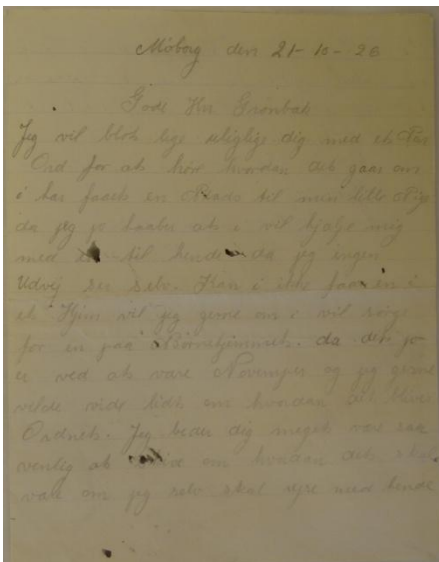 Møborg den 21-10-26
Gode Her Grönbæk
Jeg vil blot lige uliglige dig med et Par
Ord for at høre hvordan det gaar om
i har faaet en Plads til min lille Pige
da jeg jo haaber at i vil hjælpe mig
med til hende da jeg ingen
Udvej ser selv. Kan i ikke faa en i
et Hjem vil jeg gerne om i vil sørge
for en paa Børnehjemmet. da det jo
er ved at være November og jeg gerne
vilde vide lidt om hvordan det bliver
Ordnet. Jeg beder dig meget være saa
venlig at skrive om hvordan det skal
være om jeg selv skal rejse med hende